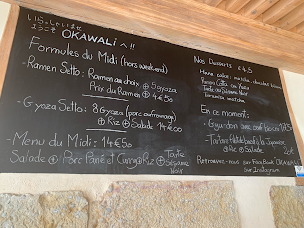 いらっしゃいませ
ようこそ OKAWALI へ!!
Formules du Midi (hors week-end)
- Ramen Setto: Ramen au choix ⊕ 5 gyoza
Prix du Ramen ⊕ 4€50
- Gyoza Setto: 8 Gyoza (porc ou fromage)
⊕ Riz ⊕ Salade 14€00
- Menu du Midi: 14€50
Salade ⊕ Porc Pané et Curry ⊕ Riz ⊕ Tarte
Sésame
Noir
Nos Desserts
cake: matcha, chocolat blanc
Tarte au Sésame Noir
matcha
En ce moment:
- Gyu-don avec oeuf
- Tartare de
⊕ Riz ⊕ Salade
Retrouvez-nous sur FaceBook OKAWALI
sur Instagram